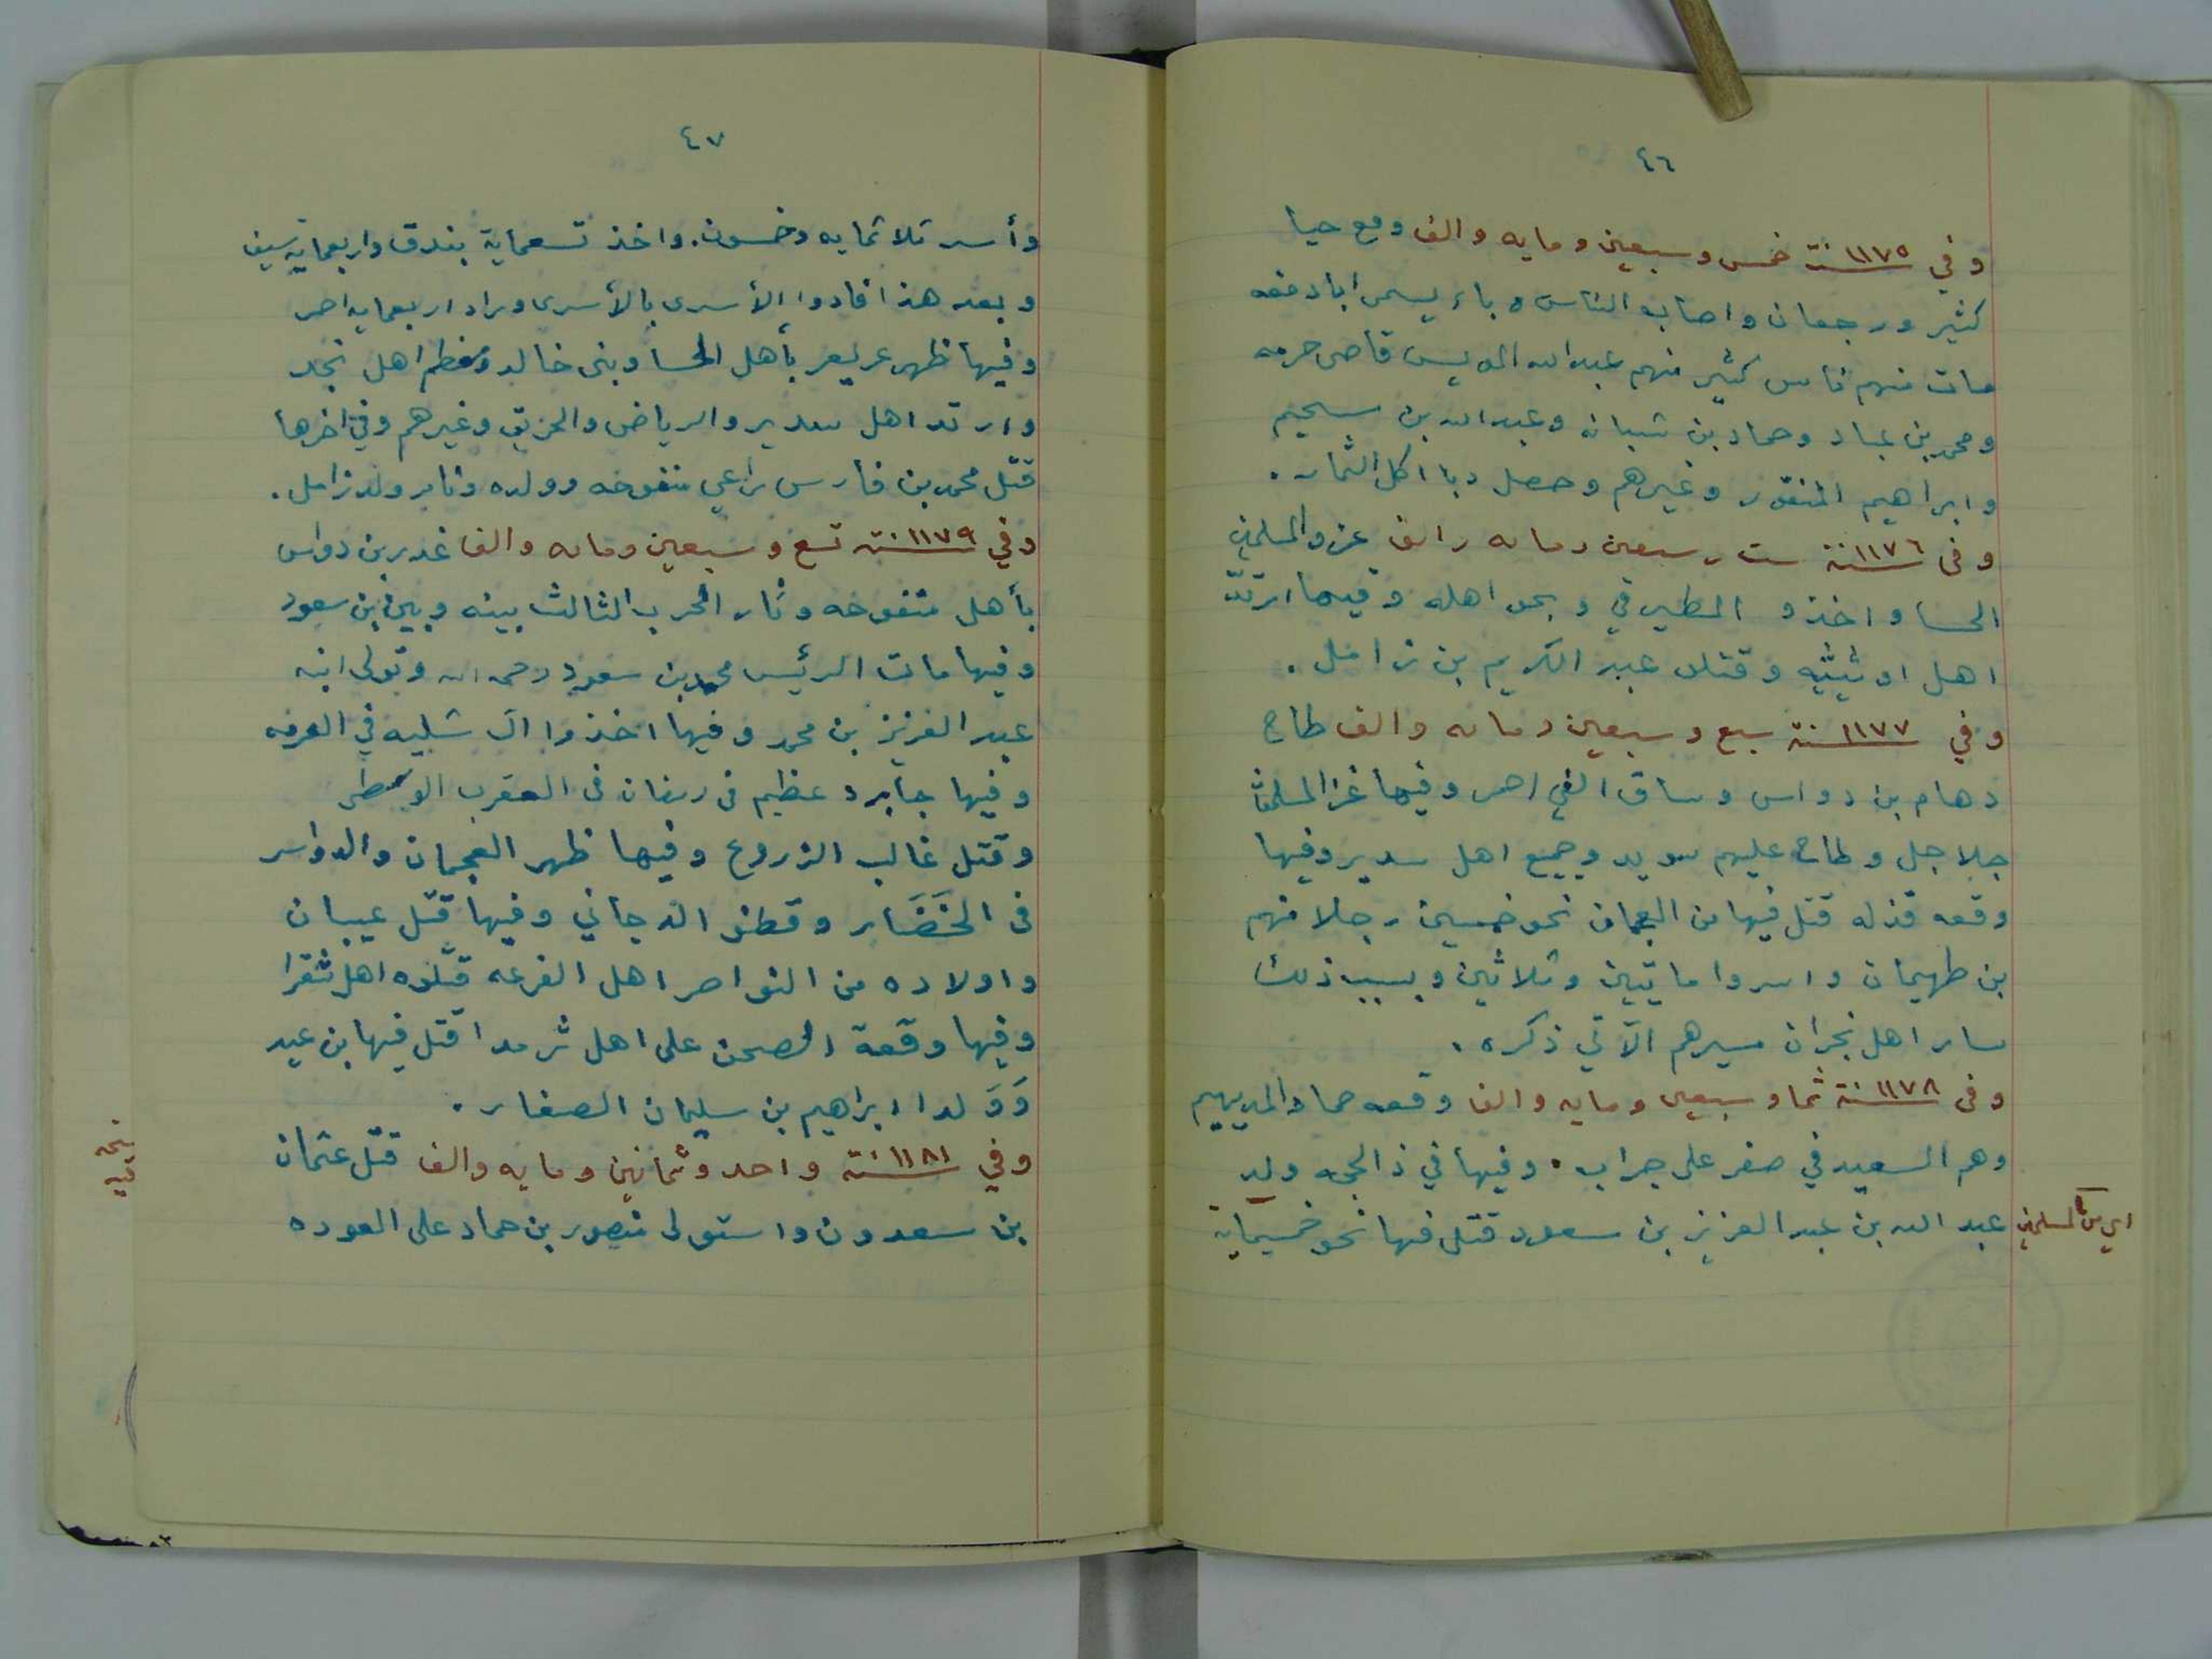 ٤٦
وفي سنة ١١٧٥ خمس وسبعين ومايه والف وقع حيا
كثير ورجعان واصاب الناس وباء يسمى ابا دمغه
مات منهم ناس كثير منهم عبدالله المويس قاضى حرمه
ومحمد بن عباد وحماد بن شبانه وعبدالله بن سحيم
وابراهيم المنقور وغيرهم وحصل دبا اكل الثمار.
وفى سنة ١١٧٦ ست وسبعين ومايه والف غزو المسلمين
الحسا واخذو المطيرفي وبعض اهله وفيها ارتد
اهل اوثيثيه وقتلو عبد الكريم بن زامل.
وفي سنة ١١٧٧ سبع وسبعين ومايه والف طاح
دهام بن دواس وساق الفي احمر وفيها غزا المسلمين
جلاجل وطاح عليهم سويد وجميع اهل سدير وفيها
وقعه قذله قتل فيها من العجمان نحو خمسين رجلا منهم
بن طهيمان واسروا مايتين وثلاثين وبسبب ذلك
سار اهل نجران مسيرهم الآتي ذكره.
وفى سنة ١١٧٨ ثمان وسبعين ومايه والف وقعه حماد المديهيم
وهم السعيد في صفر على جراب. وفيها في ذالحجه ولد
عبد الله بن عبد العزيز بن سعود قتل فيها نحو خمسماية
اي من المسلمين
٤٧
وأسر ثلاثمايه وخمسون. واخذ تسعماية بندق واربعماية سيف
وبعد هذا فادوا الأسرى بالأسرى وزاد اربعمايه احمر
وفيها ظهر عريعر بأهل الحسا وبنى خالد ومعظم اهل نجد
وارتد اهل سدير والرياض والحريق وغيرهم وفي اخرها
قتل محمد بن فارس راعي منفوحه وولده وثابر ولد زامل.
وفي سنة ١١٧٩ تسع وسبعين ومايه والف غدر بن دواس
بأهل منفوحه وثار الحرب الثالث بينه وبين بن سعود
وفيها مات الرئيس محمد بن سعود رحمه الله وتولى ابنه
عبد العزيز بن محمد وفيها اخذوا ال شليه في العرمه
وفيها جا برد عظيم فى رمضان فى العقرب الوسطى
وقتل غالب الزروع وفيها ظهر العجمان والدواسر
فى الخَضَار وقطنو الدجاني وفيها قتل عيبان
واولاده من النواصر اهل الفرعه قتلوه اهل شقرا
وفيها وقعة الصحن على اهل ثرمدا قتل فيها بن عيد
وَوَلدا ابراهيم بن سليمان الصغار.
وفي سنة ١١٨١ واحد وثمانين ومايه والف قتل عثمان
بن سعدون واستولى منصور بن حماد على العوده